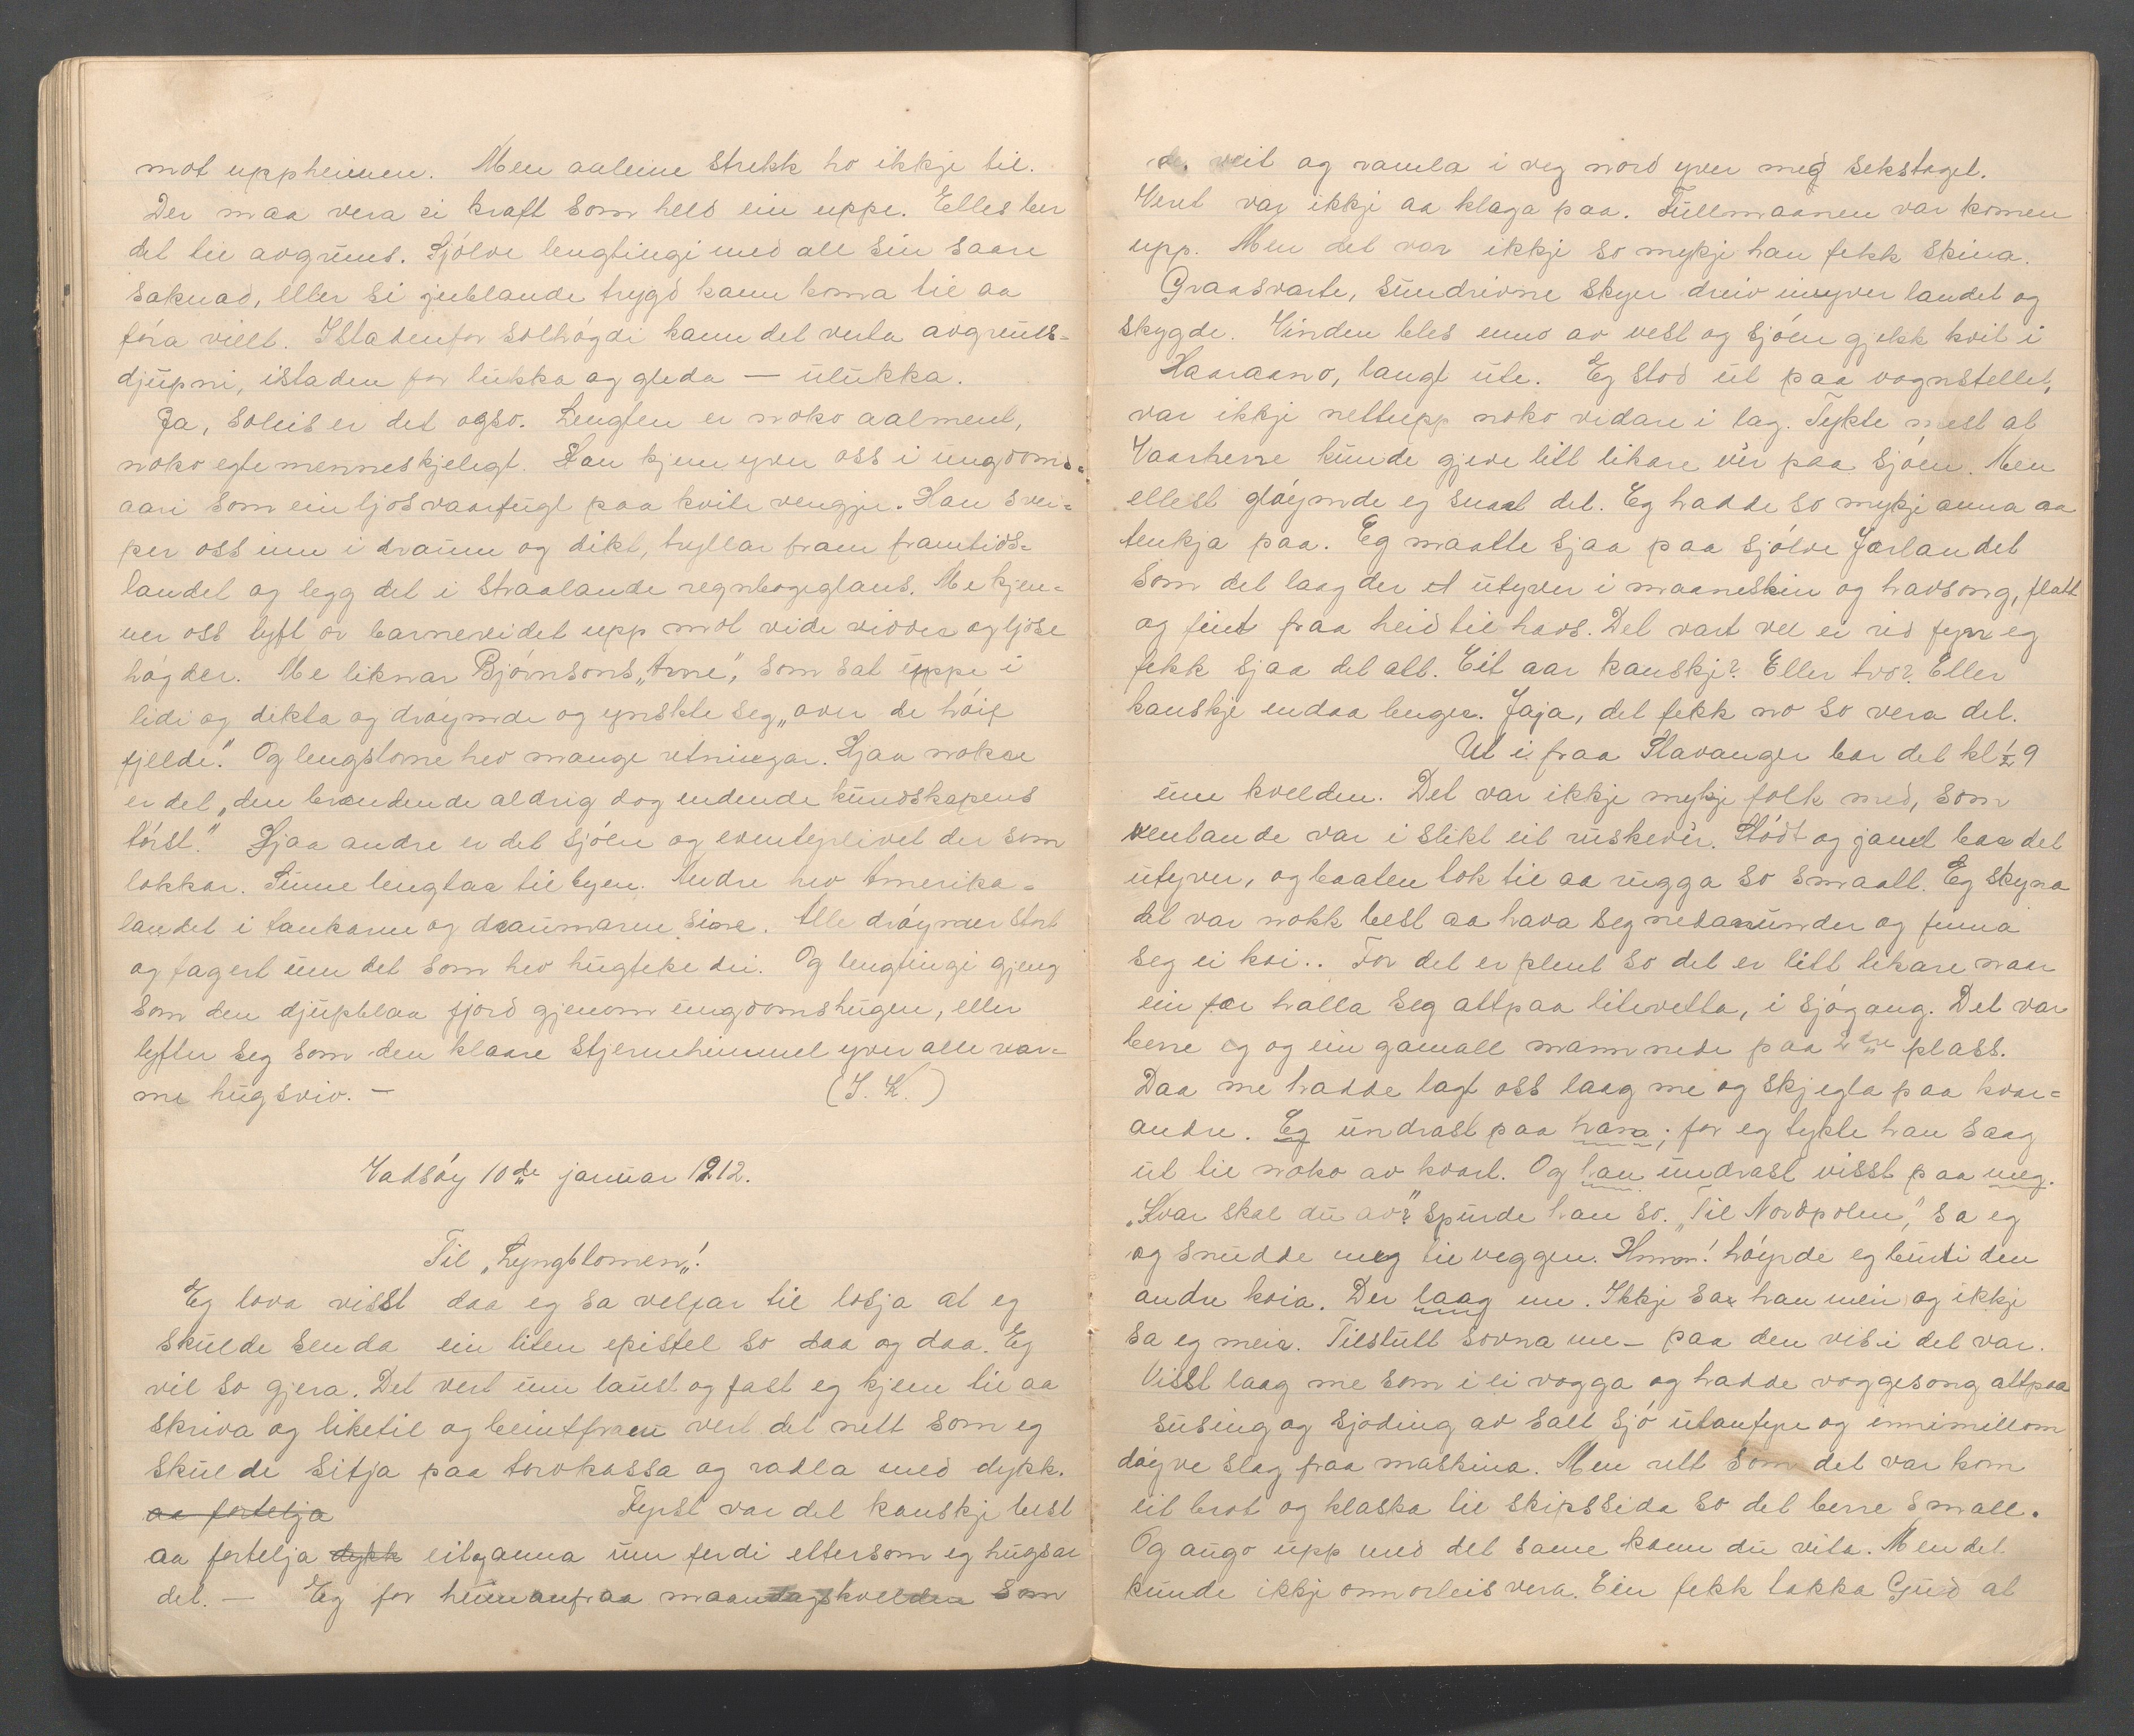 mot uppheimen. Men aaleine strekk ho ikkje til.
Der maa vera ei kraft som held ein uppe. Elles ber
det til avgruns. Sjølve lengtingi med all sin saare
saknad, eller si jublande trygd kann koma til aa
føra villt. Istadenfor solhøgdi kann det verta avgrunts-
djupni, istaden for lukka og gleda — ulukka.
Ja, soleis er det ogso. Lengten er noko aalment,
noko egte menneskjelegt. Han kjem yver oss i ungdoms-
aari som ein ljos vaarfugl paa kvite vengje. Han svei-
per oss inn i draum og dikt, tryllar fram framtids-
landet og legg det i straalande regnbogeglans. Me kjen-
ner oss lyft or barnevidet upp mot vide vidder og ljose
høgder. Me liknar Bjørnsons „Arne“, som sat uppe i
lidi og dikta og drøymde og ynskte seg „over de høie
fjelde“. Og lengslorne hev mange retningar. Hjaa nokre
er det „den brændende aldrig dog endende kundskapens
tørst.“ Hjaa andre er det sjøen og eventyrlivet der som
lokkar. Sume lengtar til byen. Andre hev Amerika-
landet i tankarne og draumarne sine. Alle drøymer stort
og fagert um det som hev hugteke dei. Og lengtingi gjeng
som den djupblaa fjord gjenom ungdomshugen, eller
lyfter seg som den klaare stjernehimmel yver alle var-
me hugsviv. — (J. K.)
Vadsøy 10de januar 1912.
Til „Lyngblomen“!
Eg lova visst daa eg sa velfar til losja at eg
skulde senda ein liten epistel so daa og daa. Eg
vil so gjera. Det vert um laust og fast eg kjem til aa
skriva og liketil og beintfram vert det nett som eg
skulde sitja paa torvkassa og radla med dykk.
aa fortelja Fyrst var det kanskje best
aa fortelja dykk eitqanna um ferdi ettersom eg hugsar
det. — Eg for heimanfraa maandagskvelden som
de veit og ramla i veg nord yver med sekstoget.
Veret var ikkje aa klaga paa. Fullmaanen var komen
upp. Men det var ikkje so mykje han fekk skina.
Graasvarte, sundrivne skyer dreiv innyver landet og
skygde. Vinden bles enno av vest og sjøen gjekk kvit i
Haaraano, langt ute. Eg stod ut paa vognstellet,
var ikkje nettupp noko vidare i lag. Tykte mest at
Vaarherre kunde gjeve litt likare vêr paa sjøen. Men
ellest gløymde eg snart det. Eg hadde so mykje anna aa
tenkja paa. Eg maatte sjaa paa sjølve Jærlandet
som det laag der ut utyver i maaneskin og havsong, flatt
og fint fraa heid til havs. Det vart vel ei rid fyrr eg
fekk sjaa det att. Eit aar kanskje? Eller tvo? Eller
kanskje endaa lenger. Jaja, det fekk no so vera det.
Ut i fraa Stavanger bar det kl ½ 9
um kvelden. Det var ikkje mykje folk med, som
ventande var i slikt eit ruskevêr. Stødt og jamt baar det
utyver, og baaten tok til aa rugga so smaatt. Eg skyna
det var nokk best aa hava seg nedanunder og finna
seg ei koi.. For det er plent so det er litt likare naar
ein fær halla seg attpaa litevetta, i sjøgang. Det var
berre eg og ein gamall mann nede paa 2dre plass.
Daa me hadde lagt oss laag me og skjegla paa kvar-
andre. Eg undrast paa han; for eg tykte han saag
ut til noko av kvart. Og han undrast visst paa meg.
„Kvar skal du av?“ spurde han so. „Til Nordpolen,“ sa eg
og snudde meg til veggen. Hmm! høyrde eg burti den
andre koia. Der laag me. Ikkje sa han meir og ikkje
sa eg meir. Tilslutt sovna me — paa den vis i det var.
Visst laag me som i ei vogga og hadde voggesong attpaa
susing og sjoding av salt sjø utanfyre og innimillom
døyve slag fraa maskina. Men rett som det var kom
eit brot og klaska til skipssida so det berre small.
Og augo upp med det same kann du vita. Men det
kunde ikkje onnorleis vera. Ein fekk takka Gud at